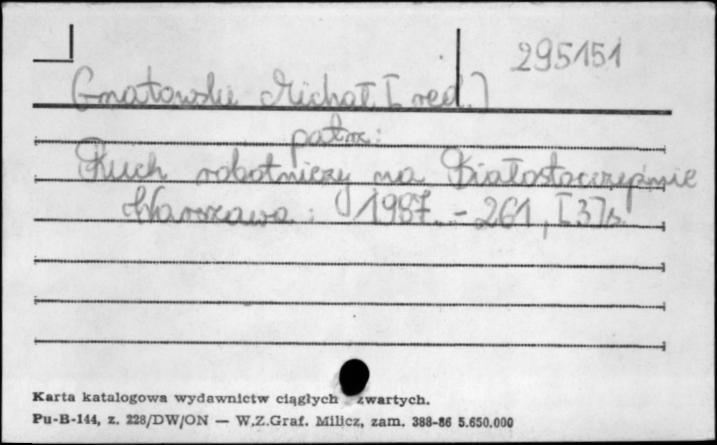 295151
Gnatowski Michał [red.]
patrz:
Ruch robotniczy na Białostocczyźnie
Warszawa : 1987. - 261, [3] s.
Karta katalogowa wydawnictw ciągłych zwartych.
Pu-B-144, z. 228/DW/ON — W.Z.Graf. Milicz, zam. 388-86 5.650.000